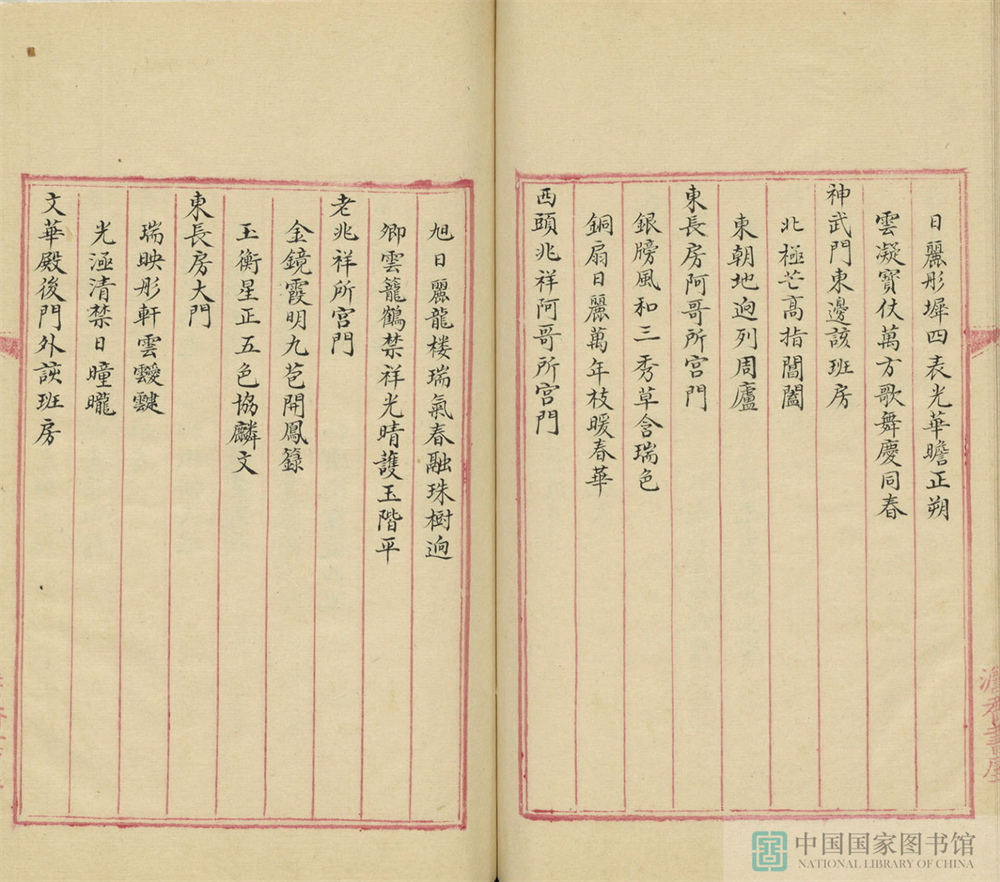 日麗彤墀四表光華瞻正朔
雲凝寶仗萬方歌舞慶同春
神武門東邊該班房
北極芒高指閶闔
東朝地迥列周廬
東長房阿哥所宫門
銀牓風和三秀草含瑞色
銅扇日麗萬年枝暖春華
西頭兆祥阿哥所宫門
旭日麗龍楼瑞氣春融珠樹迥
卿雲籠鶴禁祥光晴護玉階平
老兆祥所宫門
金鏡霞明九苞開鳳籙
玉衡星正五色協麟文
東長房大門
瑞映彤軒雲靉靆
光涵清禁日曈曨
文華殿後門外該班房
中国国家图书馆
NATIONAL LIBRARY OF CHINA